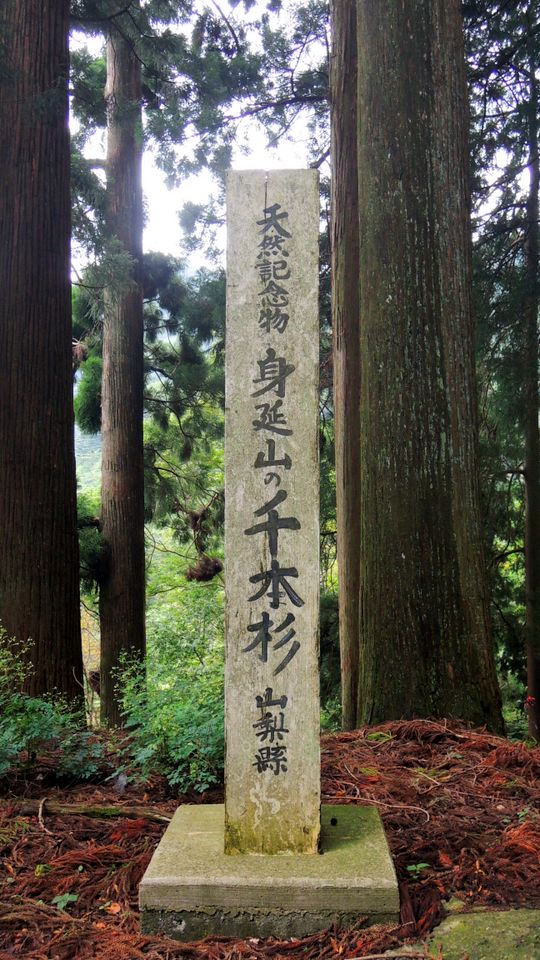 天然記念物 身延山の千本杉 山梨縣